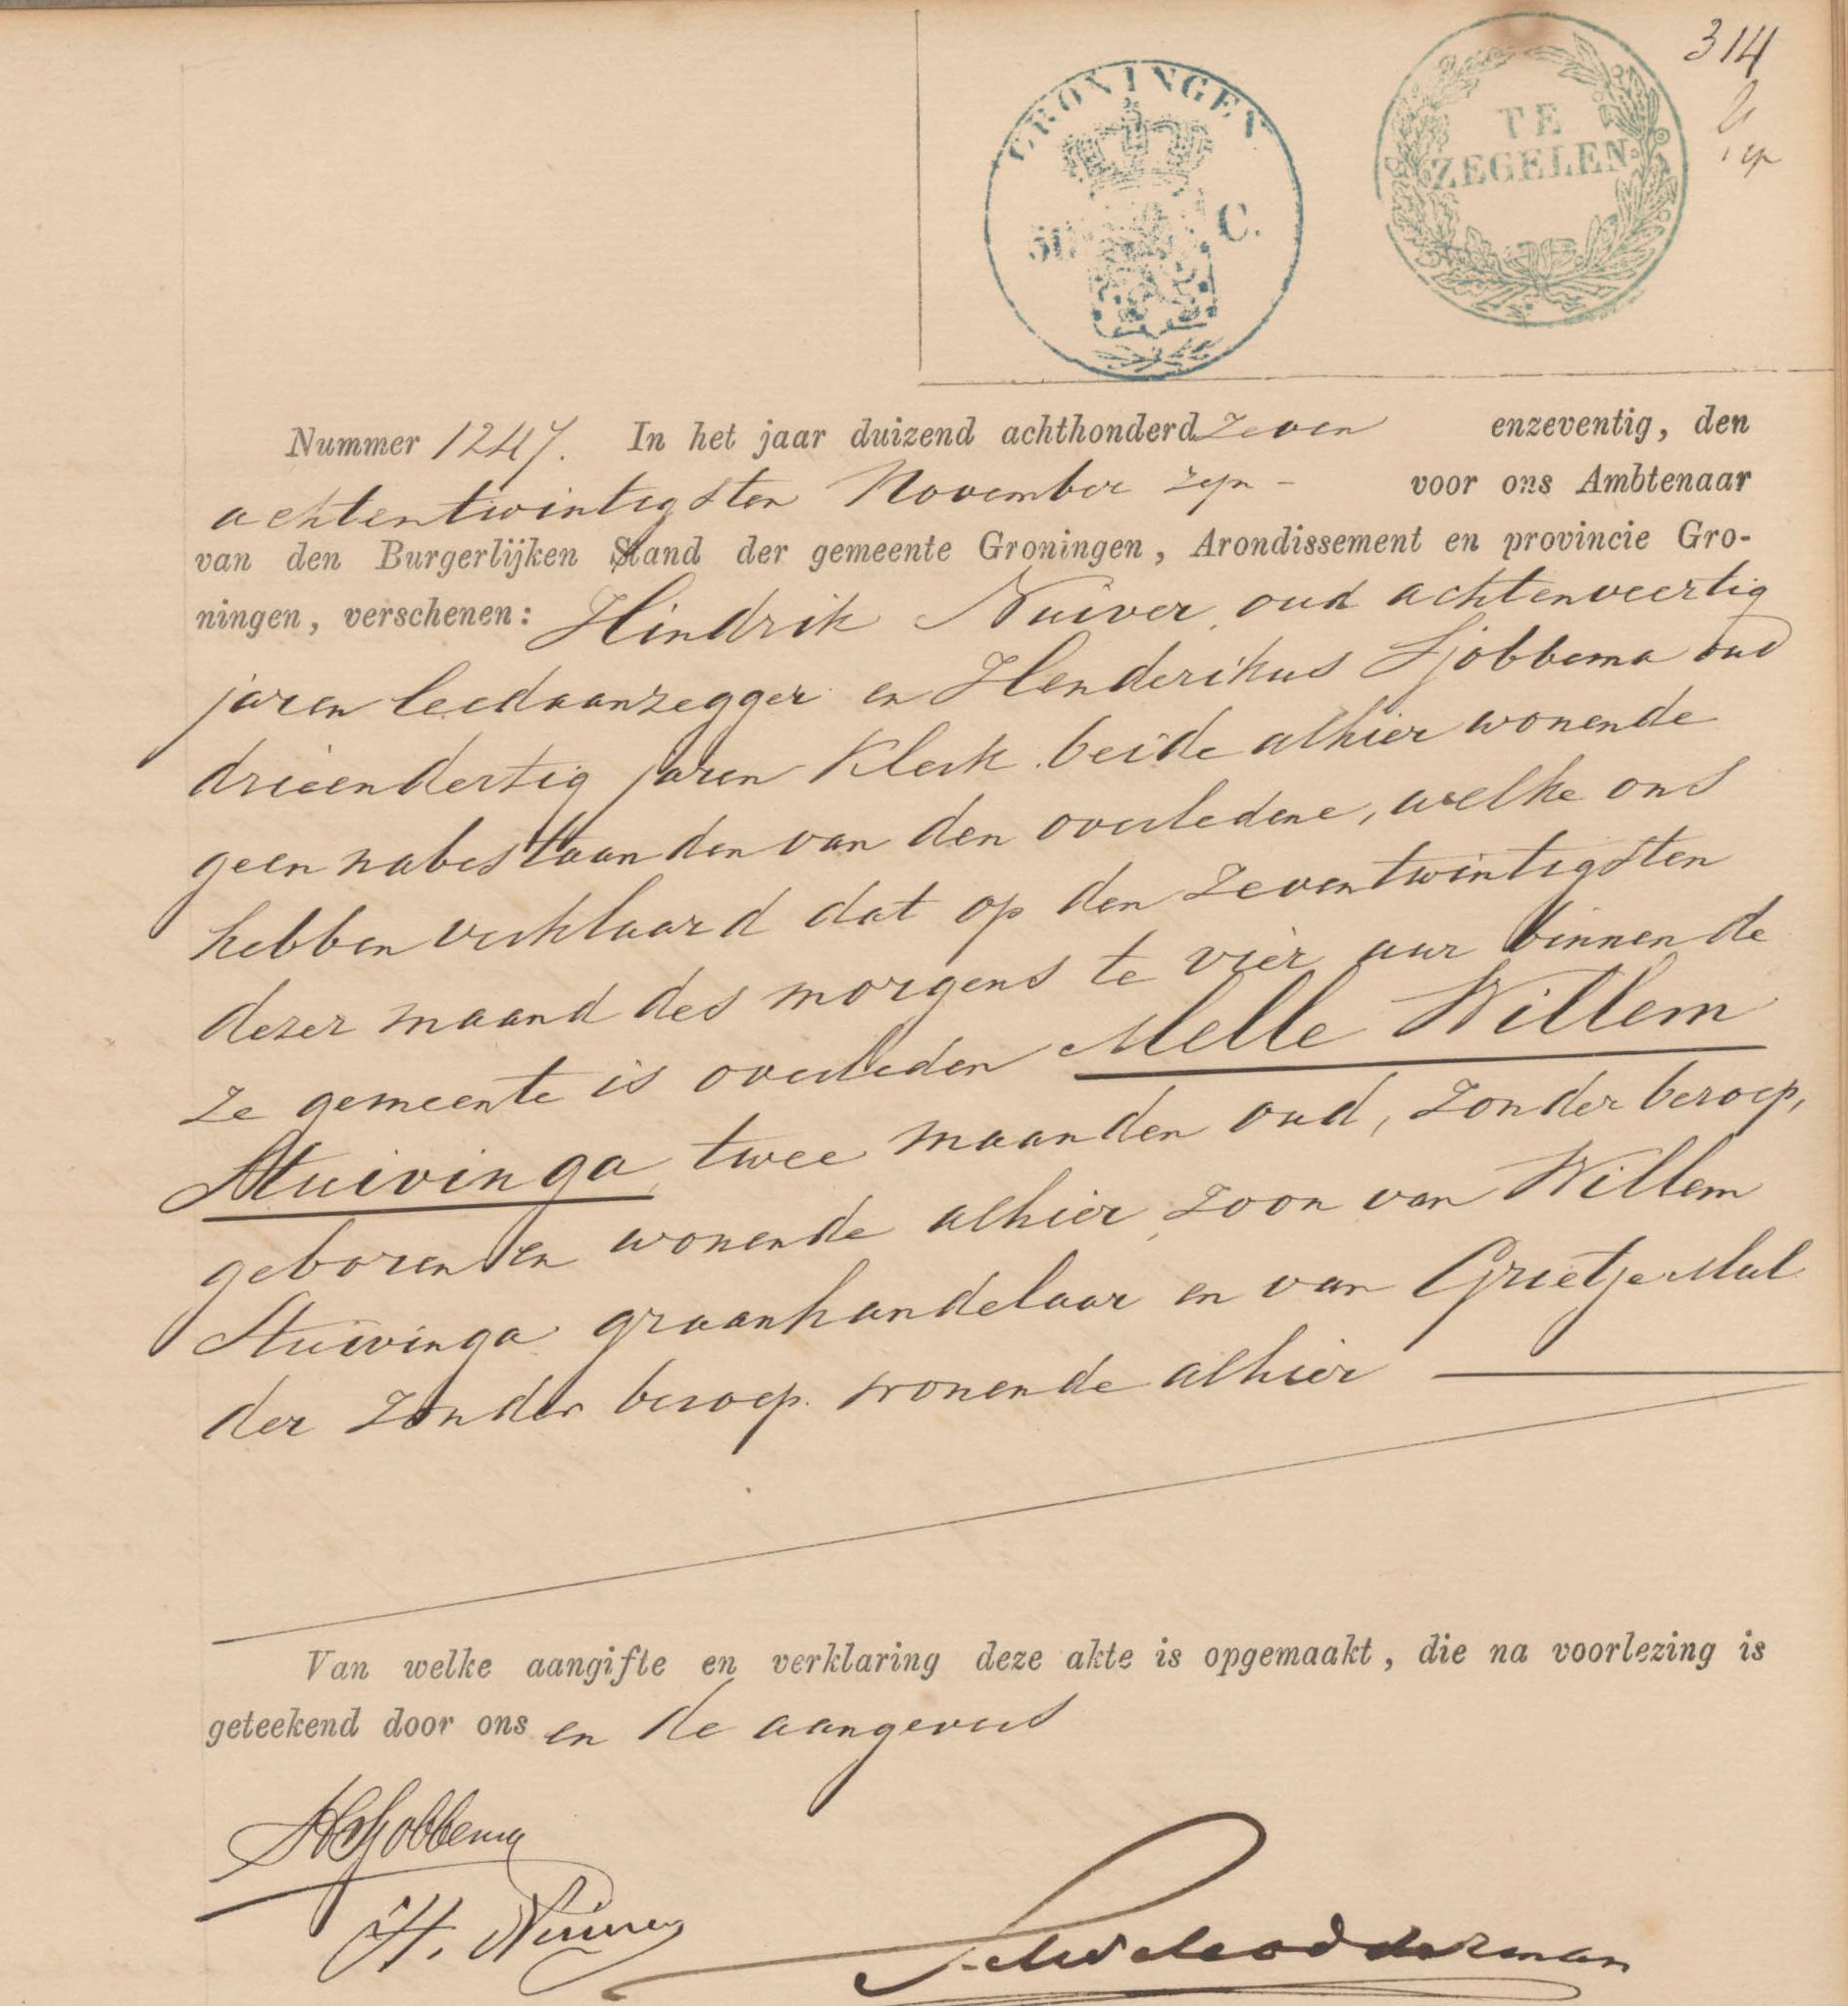 314
GRONINGEN
50 C.
TE
ZEGELEN
Nummer 1247. In het jaar duizend achthonderd zeven enzeventig, den
achtentwintigsten November zijn - voor ons Ambtenaar
van den Burgerlijken Stand der gemeente Groningen, Arondissement en provincie Gro-
ningen, verschenen: Hindrik Nuiver, oud achtenveertig
jaren leedaanzegger en Henderikus Sjobbema oud
drieendertig jaren Klerk beide alhier wonende
geen nabestaanden van den overledene, welke ons
hebben verklaard dat op den zeventwintigsten
dezer maand des morgens te vier uur binnen de
ze gemeente is overleden Melle Willem
Stuivinga, twee maanden oud, zonder beroep,
geboren en wonende alhier, zoon van Willem
Stuivinga graanhandelaar en van Grietje Mul
der zonder beroep. wonende alhier
Van welke aangifte en verklaring deze akte is opgemaakt, die na voorlezing is
geteekend door ons en de aangevers
HSjobbema
H. Nuiver
Modderman